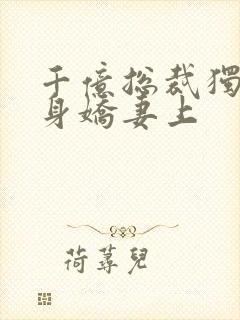 千億總裁獨
身嬌妻上
荷蕁兒